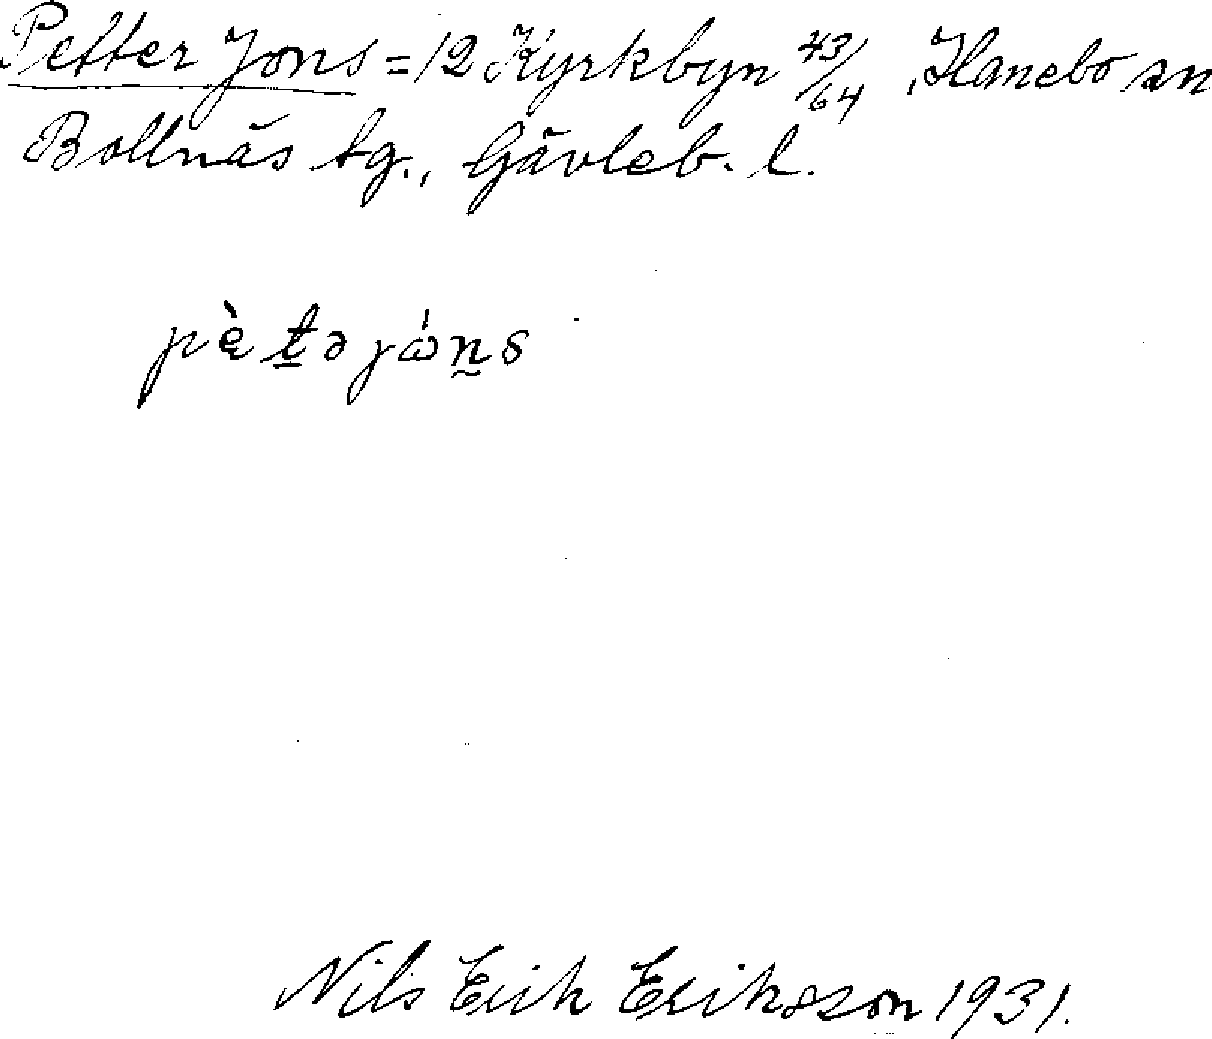 Petter Jons = 12 Kyrkbyn 43/64, Hanebo sn
Bollnäs tg., Gävleb. l.
pè̜t̠ə jώn̰s
Nils Erik Eriksson 1931.